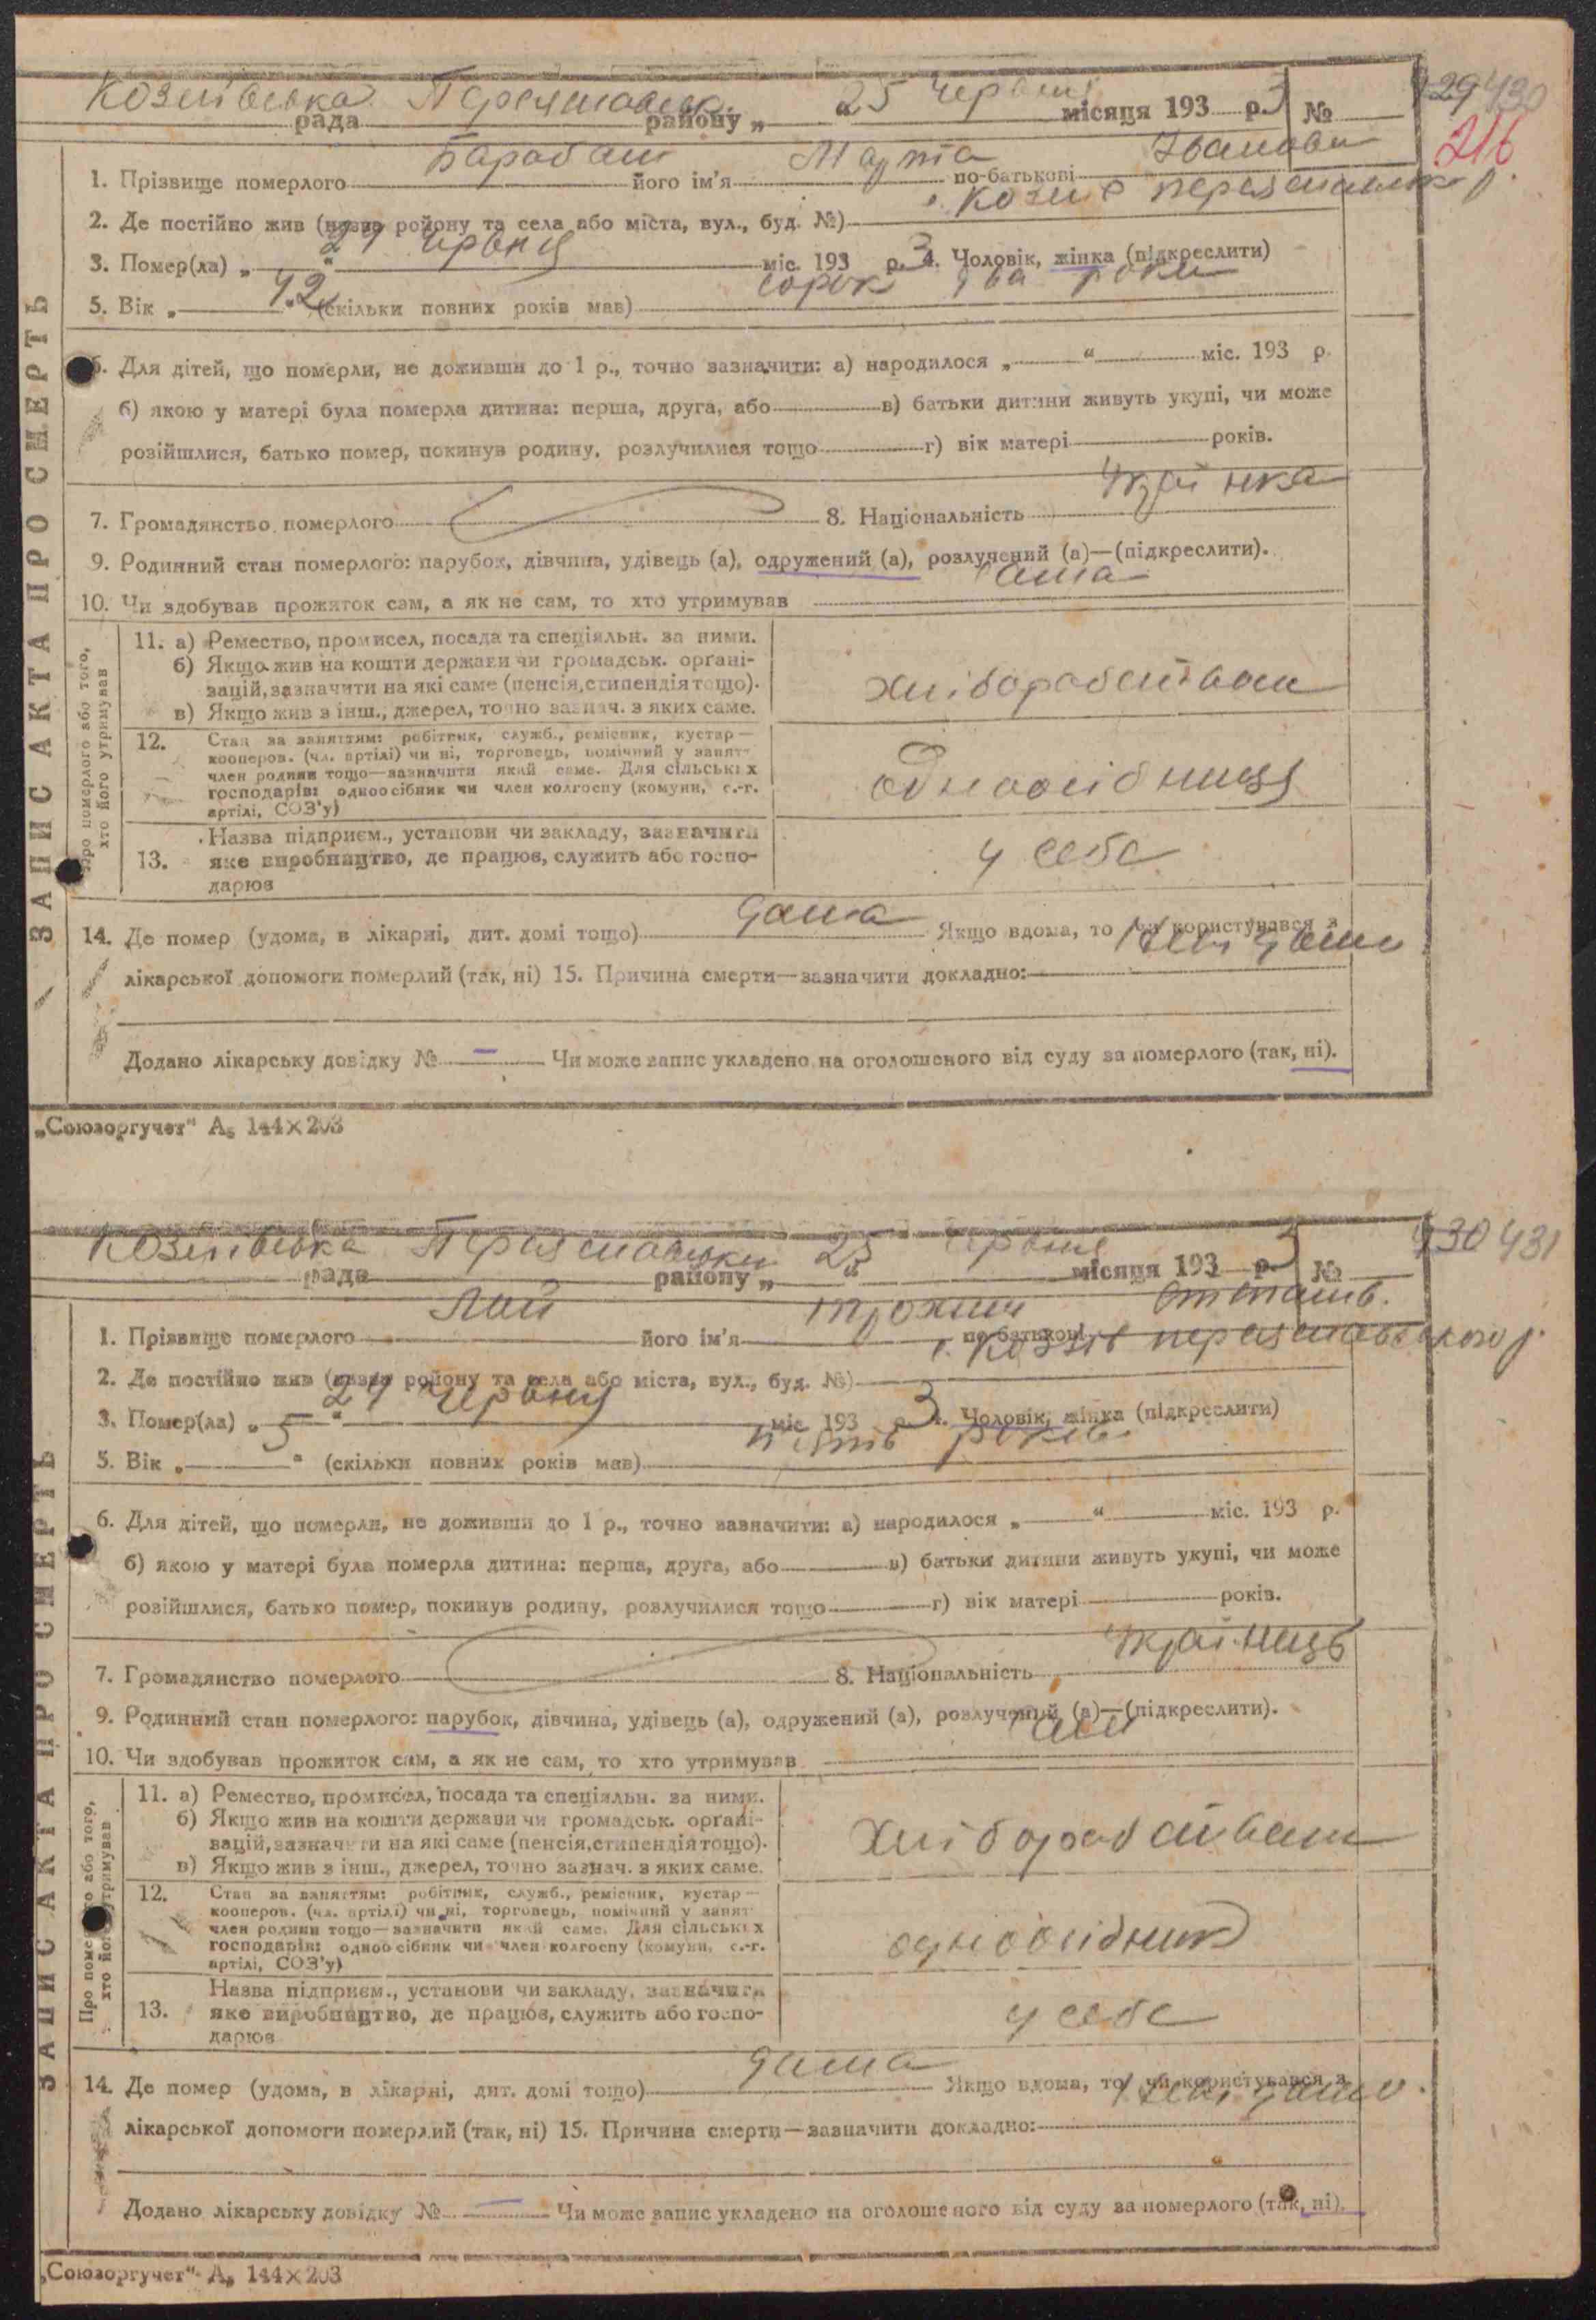 Козлівська рада Переяславськ. району „ 25 " червня місяця 193 3 р. № 429 430
216
1. Прізвище померлого Барабаш його ім'я Марта по-батькові Іванов
2. Де постійно жив (назва району та села або міста, вул., буд. №) с. Козлів переяславськ р.
3. Помер(ла) „ 24 " червня міс. 193 3 р. 4. Чоловік, жінка (підкреслити)
5. Вік „ 42 " (скільки повних років мав) сорок два роки
6. Для дітей, що померли, не доживши до 1 р., точно зазначити: а) народилося „ " міс. 193 р.
б) якою у матері була померла дитина: перша, друга, або в) батьки дитини живуть укупі, чи може
розійшлися, батько помер, покинув родину, розлучилися тощо г) вік матері років.
7. Громадянство померлого 8. Національність Українка
9. Родинний стан померлого: парубок, дівчина, удівець (а), одружений (а), розлучений (а)—(підкреслити).
10. Чи здобував прожиток сам, а як не сам, то хто утримував сама
ЗАПИС АКТА ПРО СМЕРТЬ
Про померлого або того, хто його утримував
11. а) Ремество, промисел, посада та спеціяльн. за ними.
б) Якщо жив на кошти держави чи громадськ. орґані-
зацій, зазначити на які саме (пенсія, стипендія тощо).
в) Якщо жив з інш., джерел, точно зазнач. з яких саме.
хліборобством
12. Стан за заняттям: робітник, служб., ремісник, кустар—
кооперов. (чл. артілі) чи ні, торговець, помічний у занят.
член родини тощо—зазначити який саме. Для сільських
господарів: одноосібник чи член колгоспу (комуни, с.-г.
артілі, СОЗ'у)
одноосібниця
13. Назва підприєм., установи чи закладу, зазначити
яке виробництво, де працює, служить або госпо-
дарює
у себе
14. Де помер (удома, в лікарні, дит. домі тощо) дома Якщо вдома, то чи користувався з
лікарської допомоги померлий (так, ні) 15. Причина смерти—зазначити докладно:
Додано лікарську довідку № — Чи може запис укладено на оголошеного від суду за померлого (так, ні).
„Союзоргучет" А5 144×203
Козлівська рада Переяславськи району „ 25 " червня місяця 193 3 р. № 430 431
1. Прізвище померлого Лай його ім'я Трохим по-батькові
2. Де постійно жив (назва району та села або міста, вул., буд. №) с. Козлів переяславського р.
3. Помер(ла) „ 24 " червня міс. 193 3 р. 4. Чоловік, жінка (підкреслити)
5. Вік „ 5 " (скільки повних років мав) п'ять років
6. Для дітей, що померли, не доживши до 1 р., точно зазначити: а) народилося „ " міс. 193 р.
б) якою у матері була померла дитина: перша, друга, або в) батьки дитини живуть укупі, чи може
розійшлися, батько помер, покинув родину, розлучилися тощо г) вік матері років.
7. Громадянство померлого 8. Національність Українець
9. Родинний стан померлого: парубок, дівчина, удівець (а), одружений (а), розлучений (а)—(підкреслити).
10. Чи здобував прожиток сам, а як не сам, то хто утримував сам
ЗАПИС АКТА ПРО СМЕРТЬ
Про померлого або того, хто його утримував
11. а) Ремество, промисел, посада та спеціяльн. за ними.
б) Якщо жив на кошти держави чи громадськ. орґані-
зацій, зазначити на які саме (пенсія, стипендія тощо).
в) Якщо жив з інш., джерел, точно зазнач. з яких саме.
хліборобством
12. Стан за заняттям: робітник, служб., ремісник, кустар—
кооперов. (чл. артілі) чи ні, торговець, помічний у занят.
член родини тощо—зазначити який саме. Для сільських
господарів: одноосібник чи член колгоспу (комуни, с.-г.
артілі, СОЗ'у)
одноосібник
13. Назва підприєм., установи чи закладу, зазначити
яке виробництво, де працює, служить або госпо-
дарює
у себе
14. Де помер (удома, в лікарні, дит. домі тощо) дома Якщо вдома, то чи користувався з
лікарської допомоги померлий (так, ні) 15. Причина смерти—зазначити докладно:
Додано лікарську довідку № — Чи може запис укладено на оголошеного від суду за померлого (так, ні).
„Союзоргучет" А5 144×203